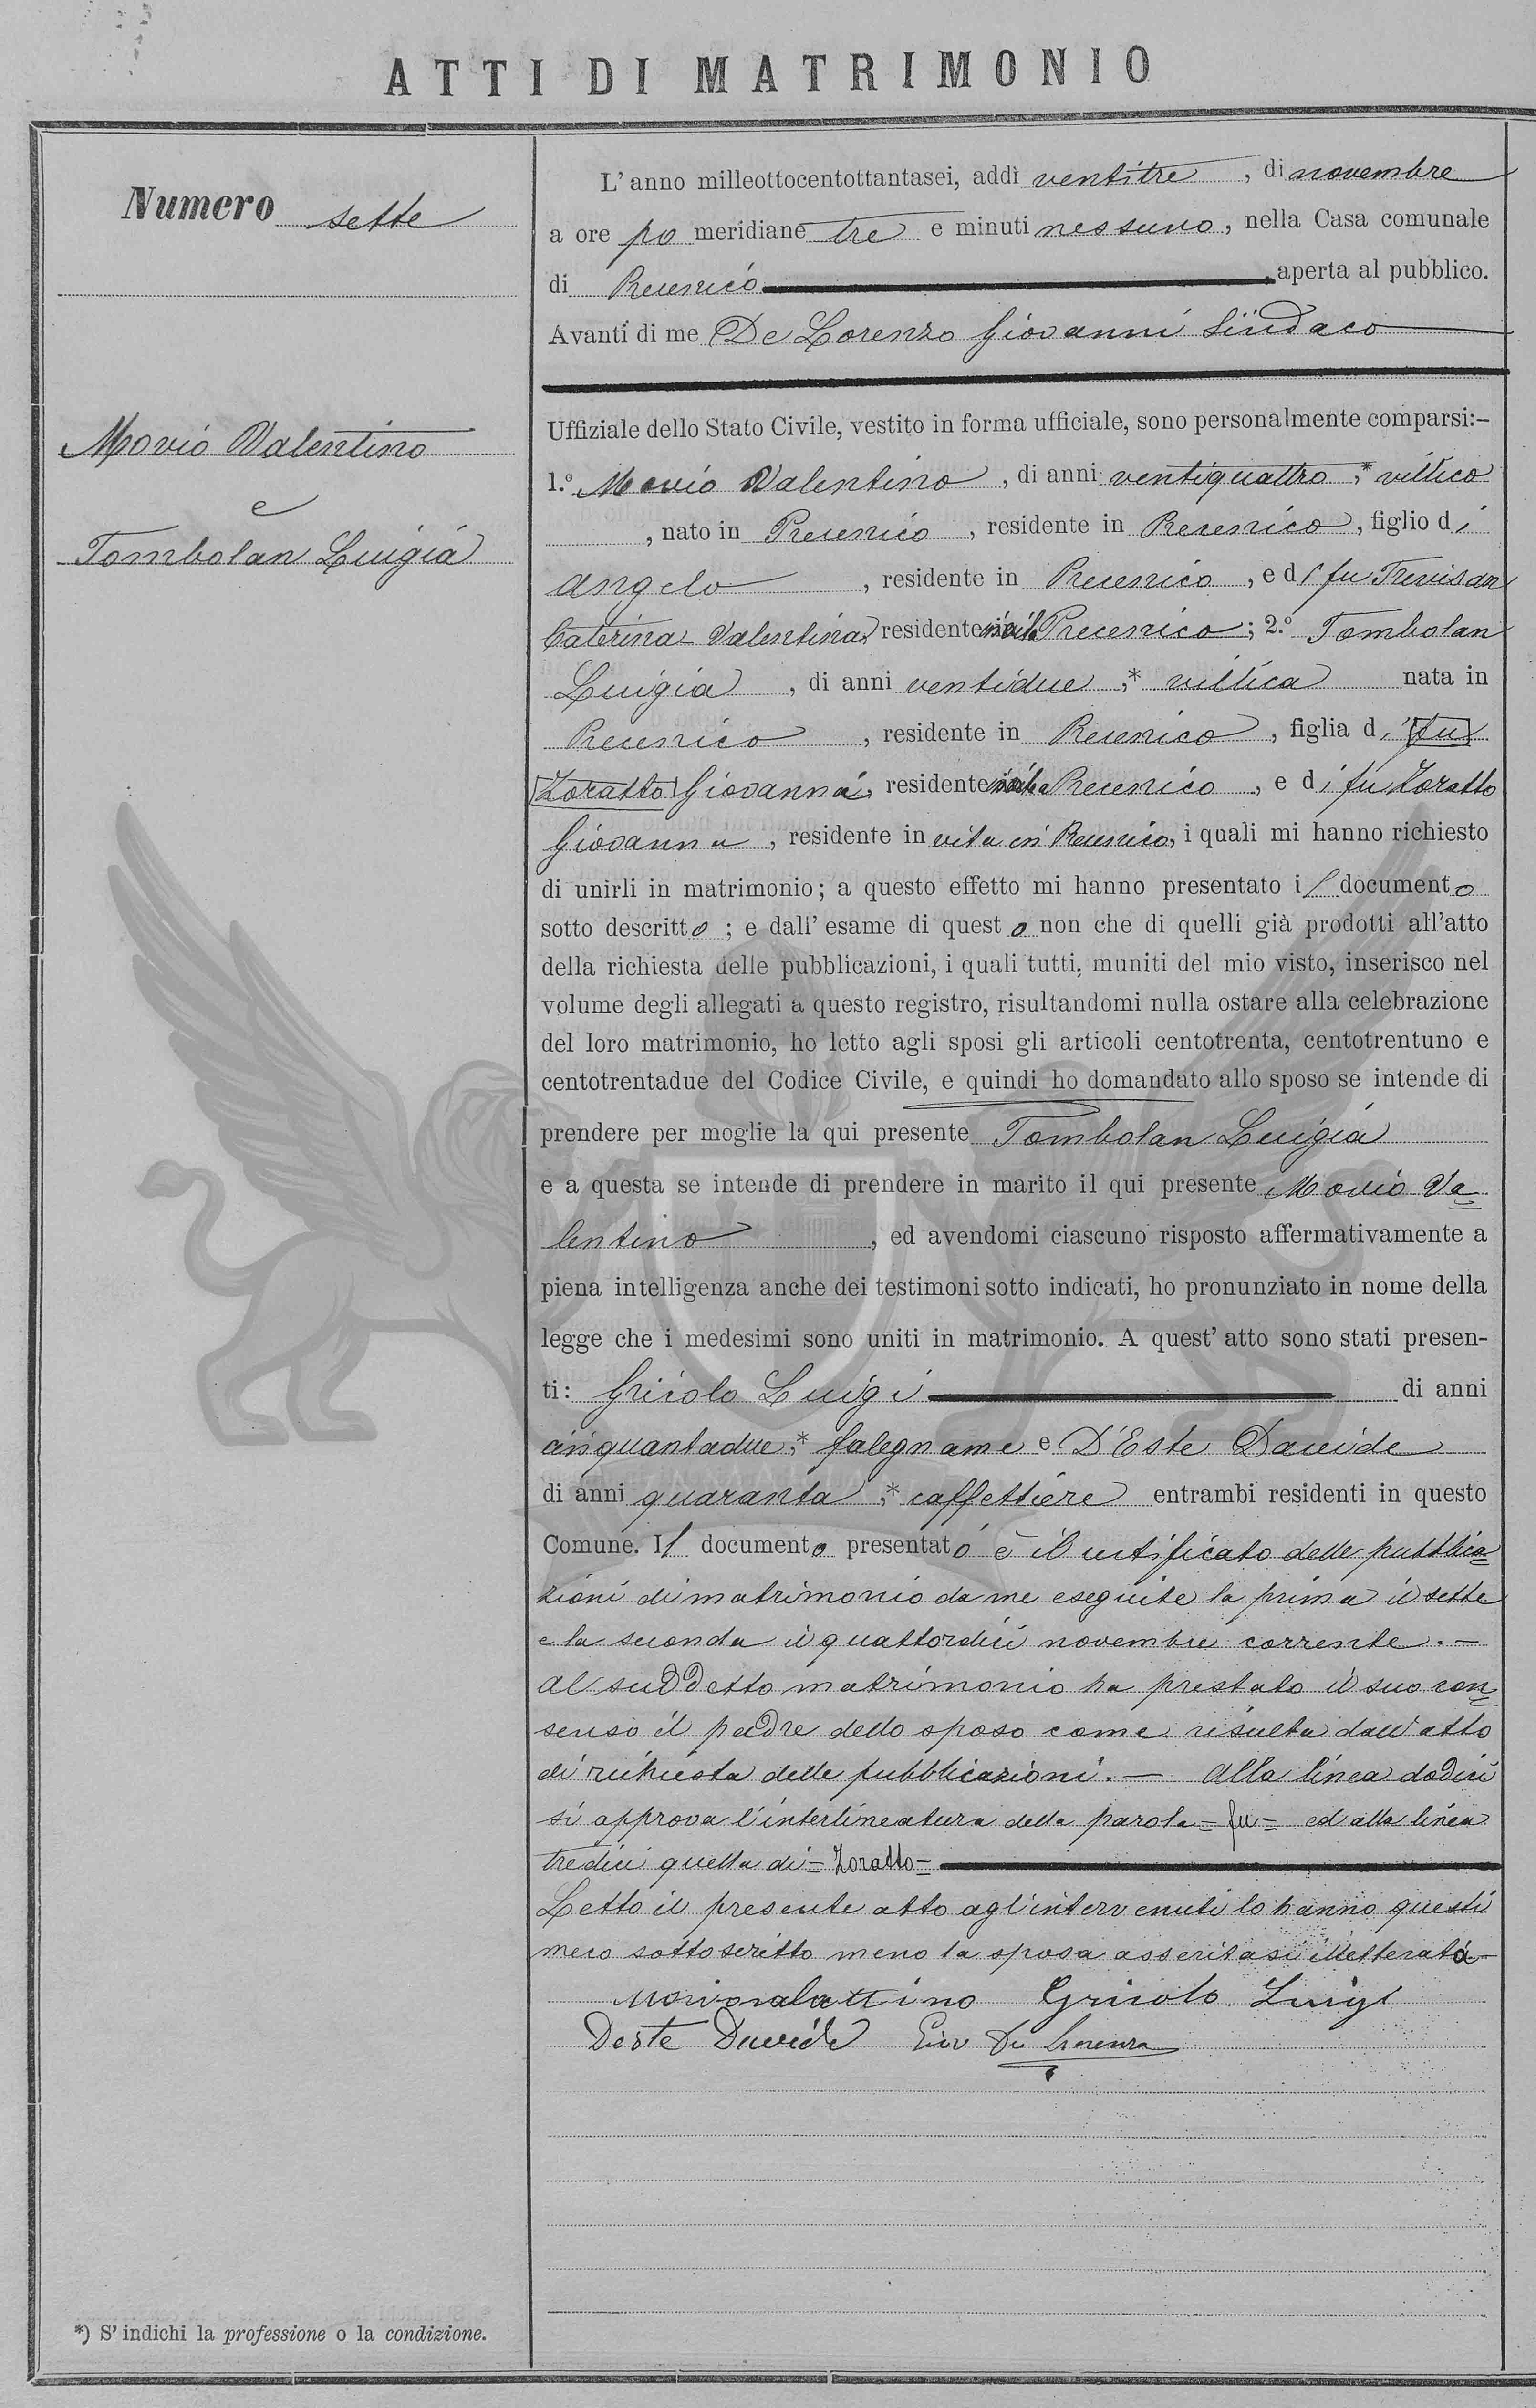 ATTI DI MATRIMONIO
Numero sette
Movio Valentino
e
Tombolan Luigia
L'anno milleottocentottantasei, addì ventitre, di novembre
a ore po meridiane tre e minuti nessuno, nella Casa comunale
di Precenico aperta al pubblico.
Avanti di me De Lorenzo Giovanni Sindaco
Uffiziale dello Stato Civile, vestito in forma ufficiale, sono personalmente comparsi:–
1.º Movio Valentino, di anni ventiquattro,* villico
, nato in Precenico, residente in Precenico, figlio di
Angelo, residente in Precenico, e di fu Trevisan
Caterina Valentina, residente in vita Precenico; 2.º Tombolan
Luigia, di anni ventidue,* villica nata in
Precenico, residente in Precenico, figlia di fu
Zoratto Giovanna, residente in vita Precenico, e di fu Zoratto
Giovanna, residente in vita in Precenico, i quali mi hanno richiesto
di unirli in matrimonio; a questo effetto mi hanno presentato il documento
sotto descritto; e dall'esame di questo non che di quelli già prodotti all'atto
della richiesta delle pubblicazioni, i quali tutti, muniti del mio visto, inserisco nel
volume degli allegati a questo registro, risultandomi nulla ostare alla celebrazione
del loro matrimonio, ho letto agli sposi gli articoli centotrenta, centotrentuno e
centotrentadue del Codice Civile, e quindi ho domandato allo sposo se intende di
prendere per moglie la qui presente Tombolan Luigia
e a questa se intende di prendere in marito il qui presente Movio Va=
lentino, ed avendomi ciascuno risposto affermativamente a
piena intelligenza anche dei testimoni sotto indicati, ho pronunziato in nome della
legge che i medesimi sono uniti in matrimonio. A quest'atto sono stati presen-
ti: Gricolo Luigi di anni
cinquantadue,* falegname e D'Este Davide
di anni quaranta,* caffettiere entrambi residenti in questo
Comune. Il documento presentato è il certificato delle pubblica=
zioni di matrimonio da me eseguite la prima il sette
e la seconda il quattordici novembre corrente. –
Al suddetto matrimonio ha prestato il suo con=
senso il padre dello sposo come risulta dall'atto
di richiesta delle pubblicazioni. – Alla linea dodici
si approva l'interlineatura della parola = fu = ed alla linea
tredici quella di = Zoratto =
Letto il presente atto agl'intervenuti lo hanno questi
meco sottoscritto meno la sposa asseritasi illetterata –
Gricolo Luigi
Deste Davide Giov De Lorenzo
*) S'indichi la professione o la condizione.